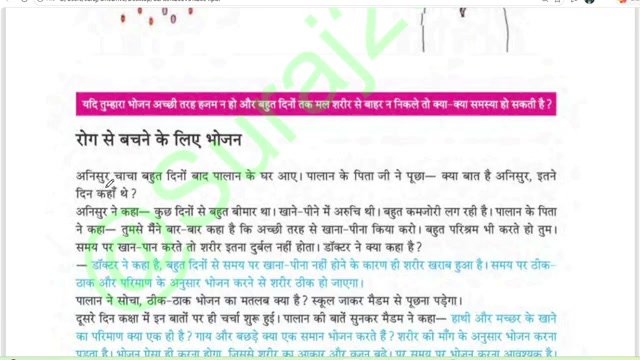 यदि तुम्हारा भोजन अच्छी तरह हजम न हो और बहुत दिनों तक मल शरीर से बाहर न निकले तो क्या-क्या समस्या हो सकती है ?
रोग से बचने के लिए भोजन
अनिसुर चाचा बहुत दिनों बाद पालान के घर आए। पालान के पिता जी ने पूछा— क्या बात है अनिसुर, इतने
दिन कहाँ थे ?
अनिसुर ने कहा— कुछ दिनों से बहुत बीमार था। खाने-पीने में अरुचि थी। बहुत कमजोरी लग रही है। पालान के पिता
ने कहा— तुमसे मैंने बार-बार कहा है कि अच्छी तरह से खाना-पीना किया करो। बहुत परिश्रम भी करते हो तुम।
समय पर खान-पान करते तो शरीर इतना दुर्बल नहीं होता। डॉक्टर ने क्या कहा है ?
— डॉक्टर ने कहा है, बहुत दिनों से समय पर खाना-पीना नहीं होने के कारण ही शरीर खराब हुआ है। समय पर ठीक-
ठाक और परिमाण के अनुसार भोजन करने से शरीर ठीक हो जाएगा।
पालान ने सोचा, ठीक-ठाक भोजन का मतलब क्या है ? स्कूल जाकर मैडम से पूछना पड़ेगा।
दूसरे दिन कक्षा में इन बातों पर ही चर्चा शुरू हुई। पालान की बातें सुनकर मैडम ने कहा— हाथी और मच्छर के खाने
का परिमाण क्या एक ही है ? गाय और बछड़े क्या एक समान भोजन करते हैं ? शरीर की माँग के अनुसार भोजन करना
पड़ता है। भोजन ऐसा ही करना होगा, जिससे शरीर का आकार और वजन बढ़े। पर समय पर भोजन करना आवश्यक है।
@Suraj2